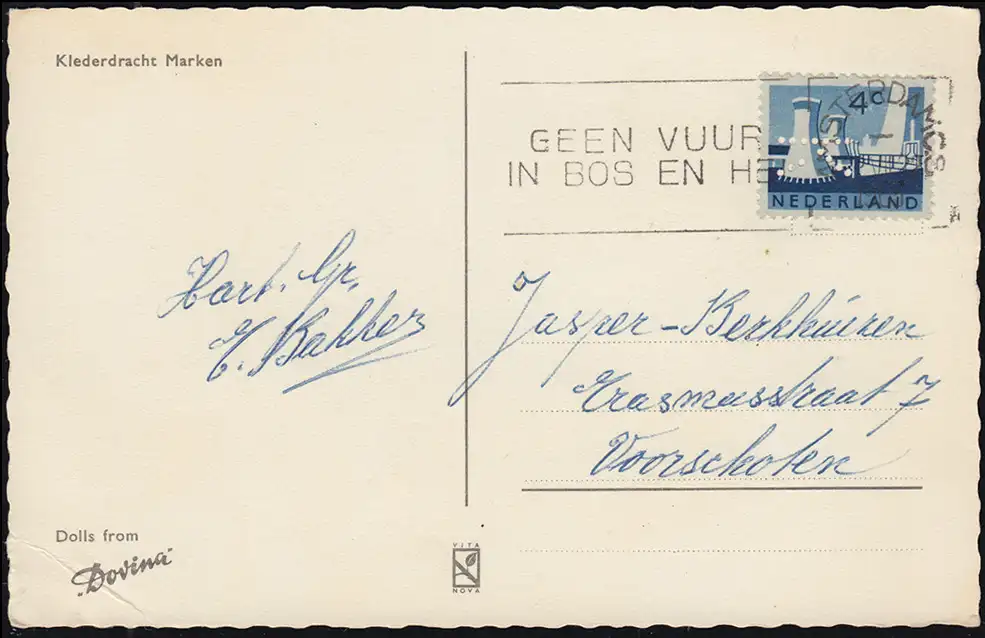 Klederdracht Marken
GEEN VUUR
IN BOS EN HE
4c
NEDERLAND
AMSTERDAM C.S.
Hart. Gr.
E. Bakker
Jasper-Berkhuizen
Erasmusstraat 7
Voorschoten
Dolls from
"Dovina"
VITA
NOVA